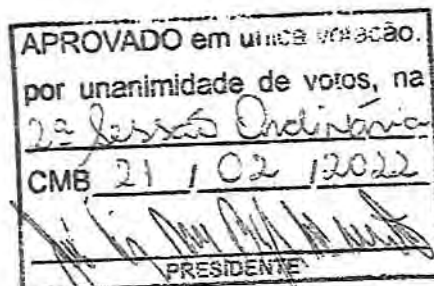 APROVADO em unica votação.
por unanimidade de votos, na
2ª Sessão Ordinária
CMB 21 / 02 / 2022
PRESIDENTE